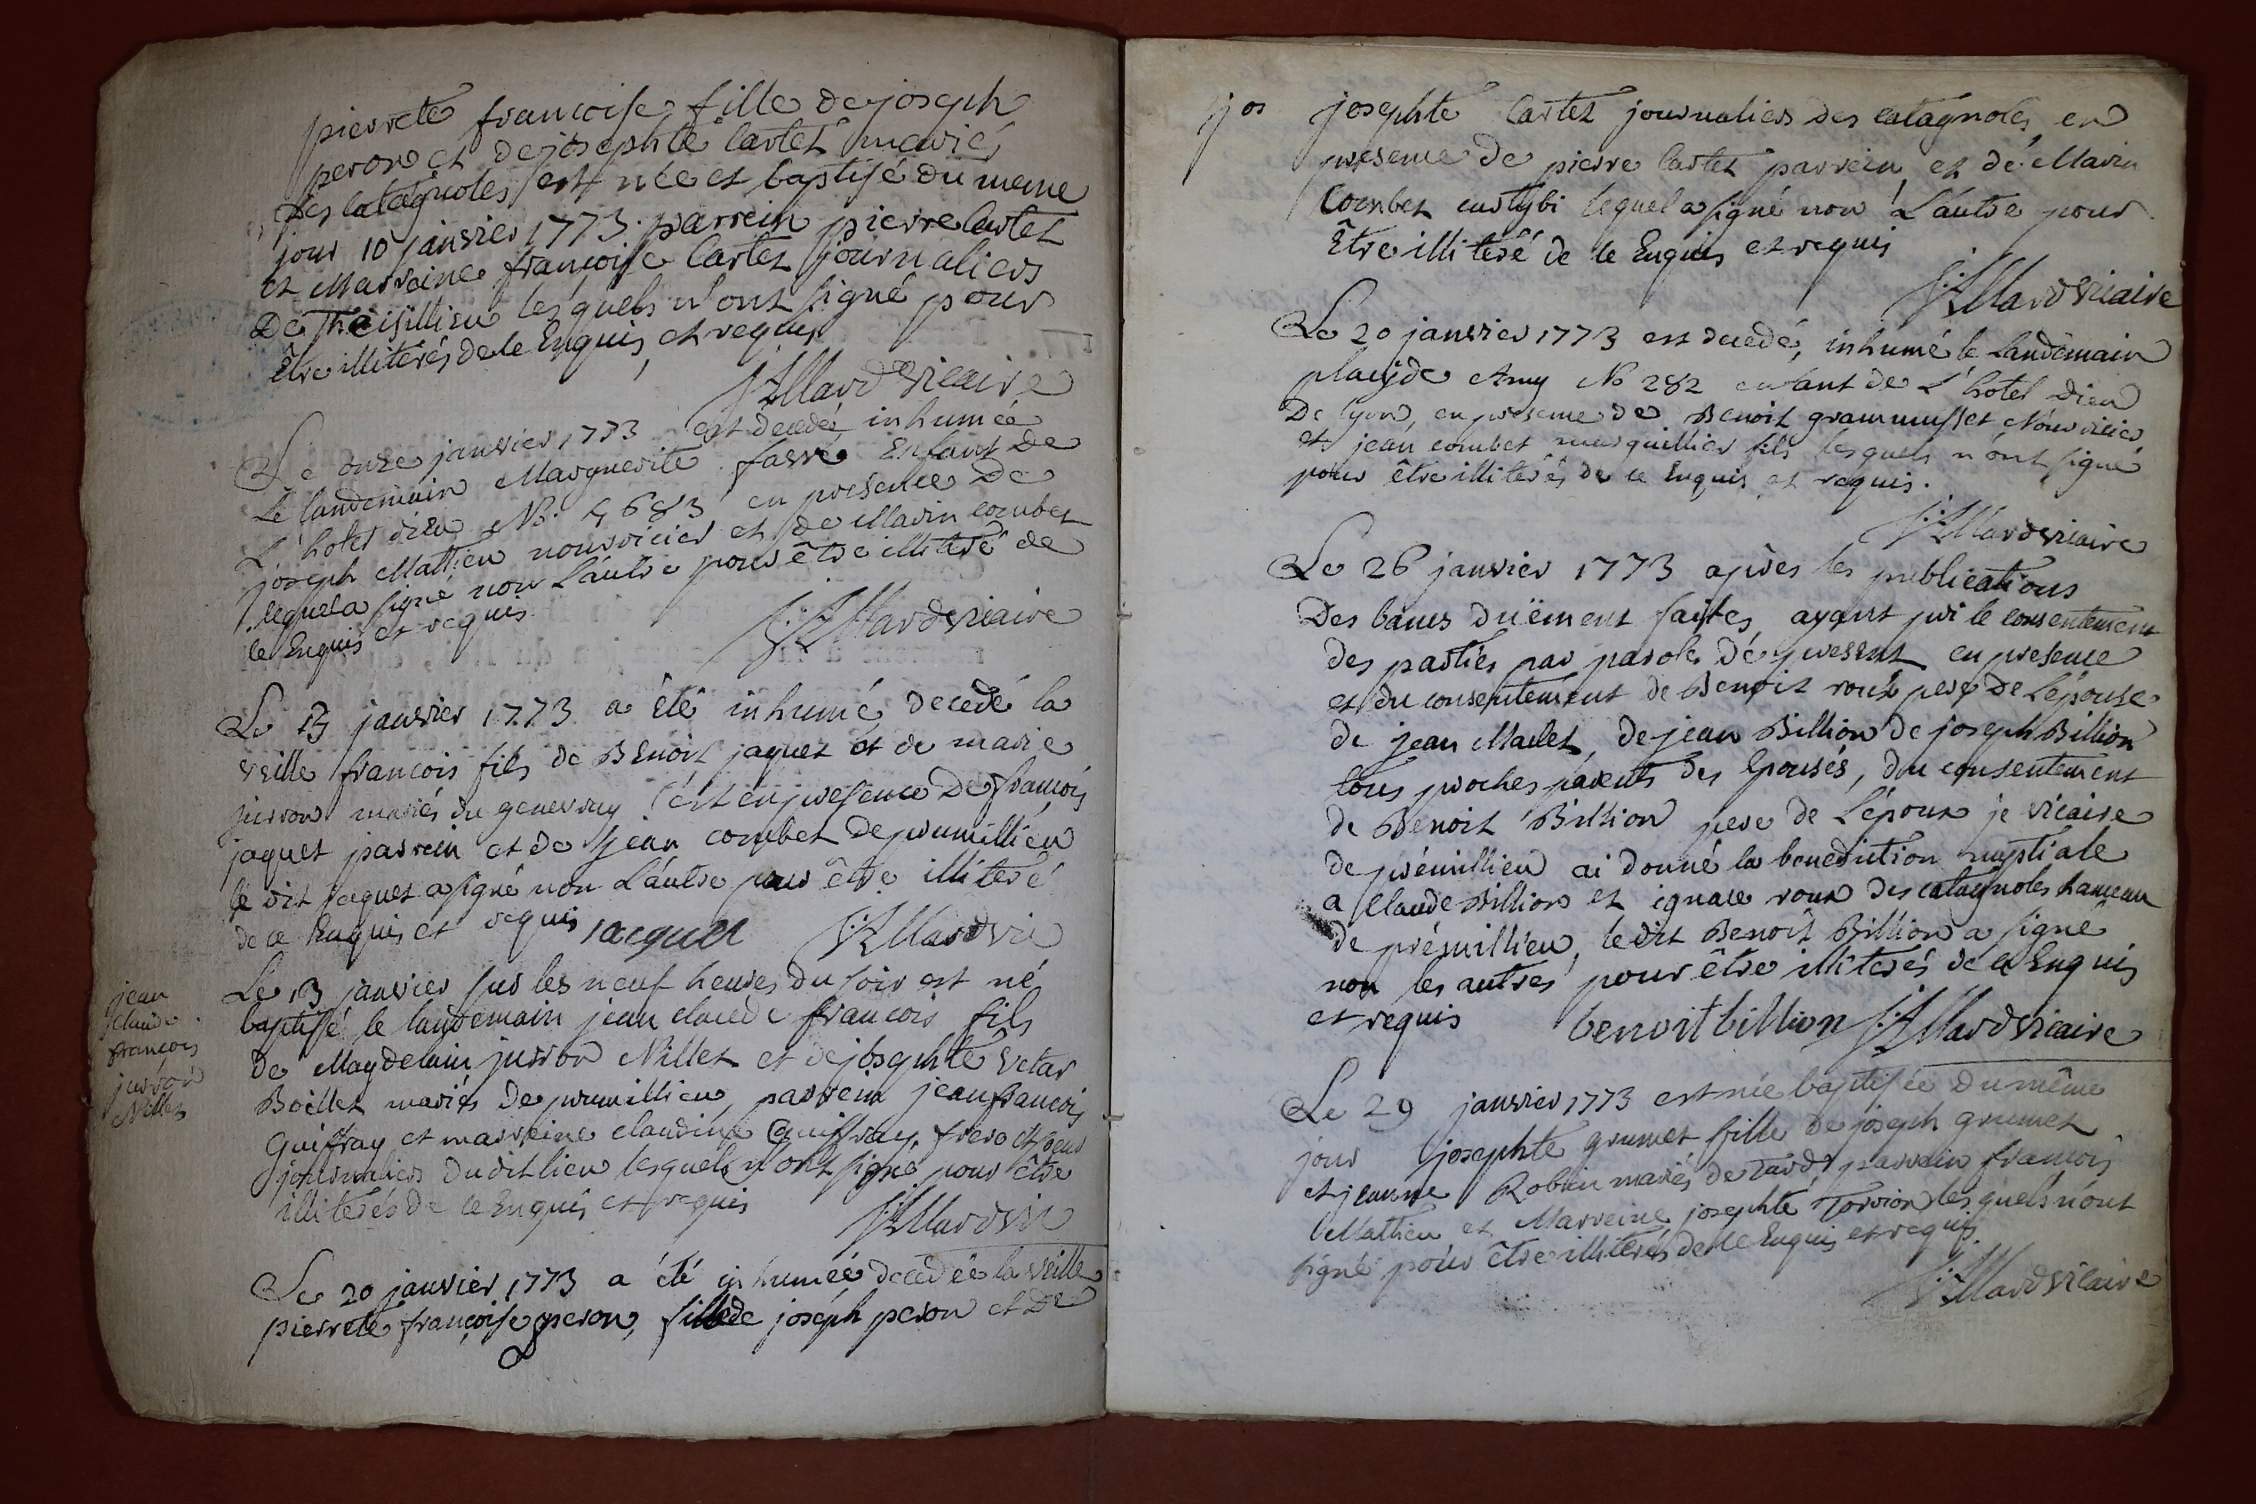 pierrete francoise fille de joseph
peron et de josephte cartet mariés
des catagnoles est née et baptisé du meme
jour 10 janvier 1773. parrein pierre cartet
et Marraine françoise Cartet journaliers
De Threisillieu lesquels n'ont signé pour
être illiterés de ce Enquis et requis
J:A Mard vicaire
Le onze janvier 1773 est decedée inhumée
Le landemain Marguerite favre Enfant De
L'hotel dieu No. 4683 en presence De
joseph Mathieu nourricier et de Marin combet
lequel a signé non Lautre pour être illiteré de
ce Enquis et requis
J:A Mard vicaire
Le 13 janvier 1773 a été inhumé decedé la
veille francois fils de Benoit jaquet et de marie
jurron mariés du genevray c'est en presence De françois
jaquet parrein et de jean combet De prumillieu
le dit jaquet a signé non Lautre pour être illiteré
de ce Enquis et requis jacquet J:A Mard vic
Le 13 janvier sur les neuf heures du soir est né
baptisé le landemain jean claude francois fils
de Magdelain jurron Millet et de josephte vetar
Boillet mariés De prumillieu, parrein jean francois
Guiffray et marreine claudine Guiffray, frere et seur
journaliers du dit lieu lesquels n'ont signé pour être
illiterés de ce Enquis et requis
J:A Mard vic
jean
claude
françois
jurron
Millet
Le 20 janvier 1773 a été inhumée decedée la veille
pierrete françoise peron, fille de joseph peron et De
jos josephte Cartet journaliers des catagnoles, en
presence de pierre Cartet parrein et de Marin
Combet custybi lequel a signé non L'autre pour
Être illiteré de ce Enquis et requis
J:A Mard vicaire
Le 20 janvier 1773 est decedé, inhumé le landemain
placyde Amy No 282 enfant de L'hotel Dieu
De lyon, en presence de Benoit grammusset Nourricier
et jean combet marguillier fils lesquels n'ont signé
pour être illiterés de ce Enquis et requis.
J:A Mard vicaire
Le 26 janvier 1773 après les publications
Des bancs duëment faites, ayant pri le consentement
des parties par paroles de present en presence
et du consentement de Benoit roux pere de Lépouse
de jean Maclet, de jean Billion de joseph Billion
tous proches parents des Epousés, du consentement
de Benoit Billion pere de L'époux je vicaire
de prémillieu ai donné la benediction nuptiale
a Claude Billion et ignace roux des catagnoles hameau
de prémillieu, le dit Benoit Billion a signé
non les autres pour être illiterés de ce Enquis
et requis benoit billion J:A Mard vicaire
Le 29 janvier 1773 est née baptisée Du même
jour josephte grumet fille de joseph grumet
et jeanne Robin mariés de Tard parrein francois
Mathieu et Marreine josephte Torrion lesquels n'ont
signé pour être illiterés de ce Enquis et requis
J:A Mard vicaire